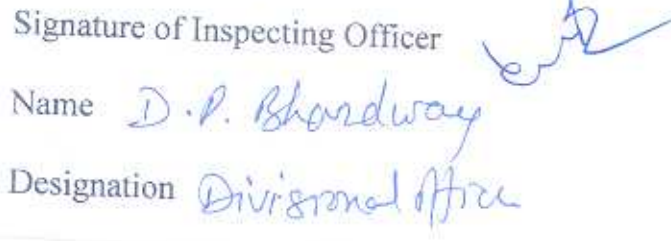 Signature of Inspecting Officer
Name D.P. Bhardwaj
Designation Divisional Office